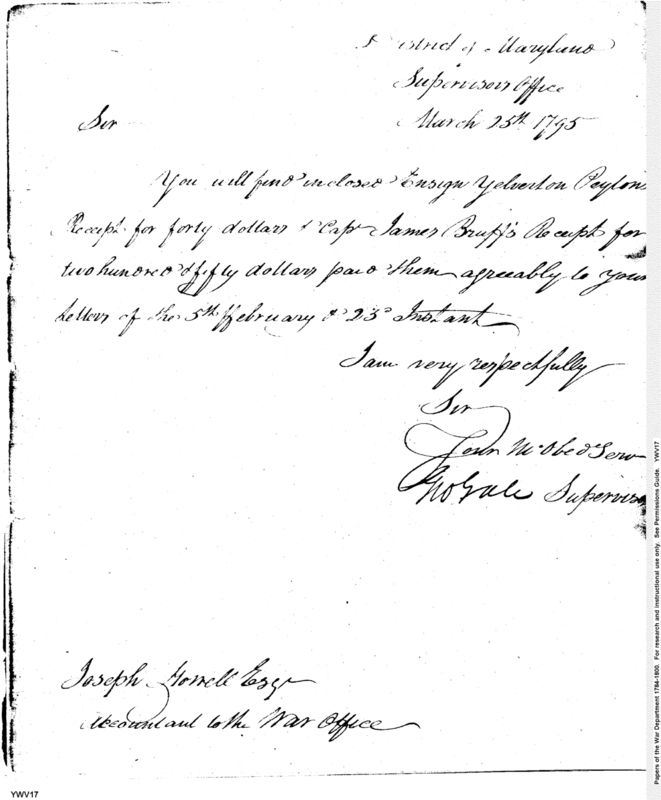 District of Maryland
Supervisors Office
March 25th 1795
Sir
You will find inclosed Ensign Yelverton Peytons
Receipt for forty dollars & Capt James Bruff's Receipt for
two hundred & fifty dollars paid them agreeably to your
Letters of the 5th ffebruary & 23d Instant
I am very respectfully
Sir
Your Mo Obed Serv
Geo Gale Supervisor
Joseph Howell Esqr
Accountant to the War Office
YWV17
Papers of the War Department 1784-1800. For research and instructional use only. See Permissions Guide. YWV17